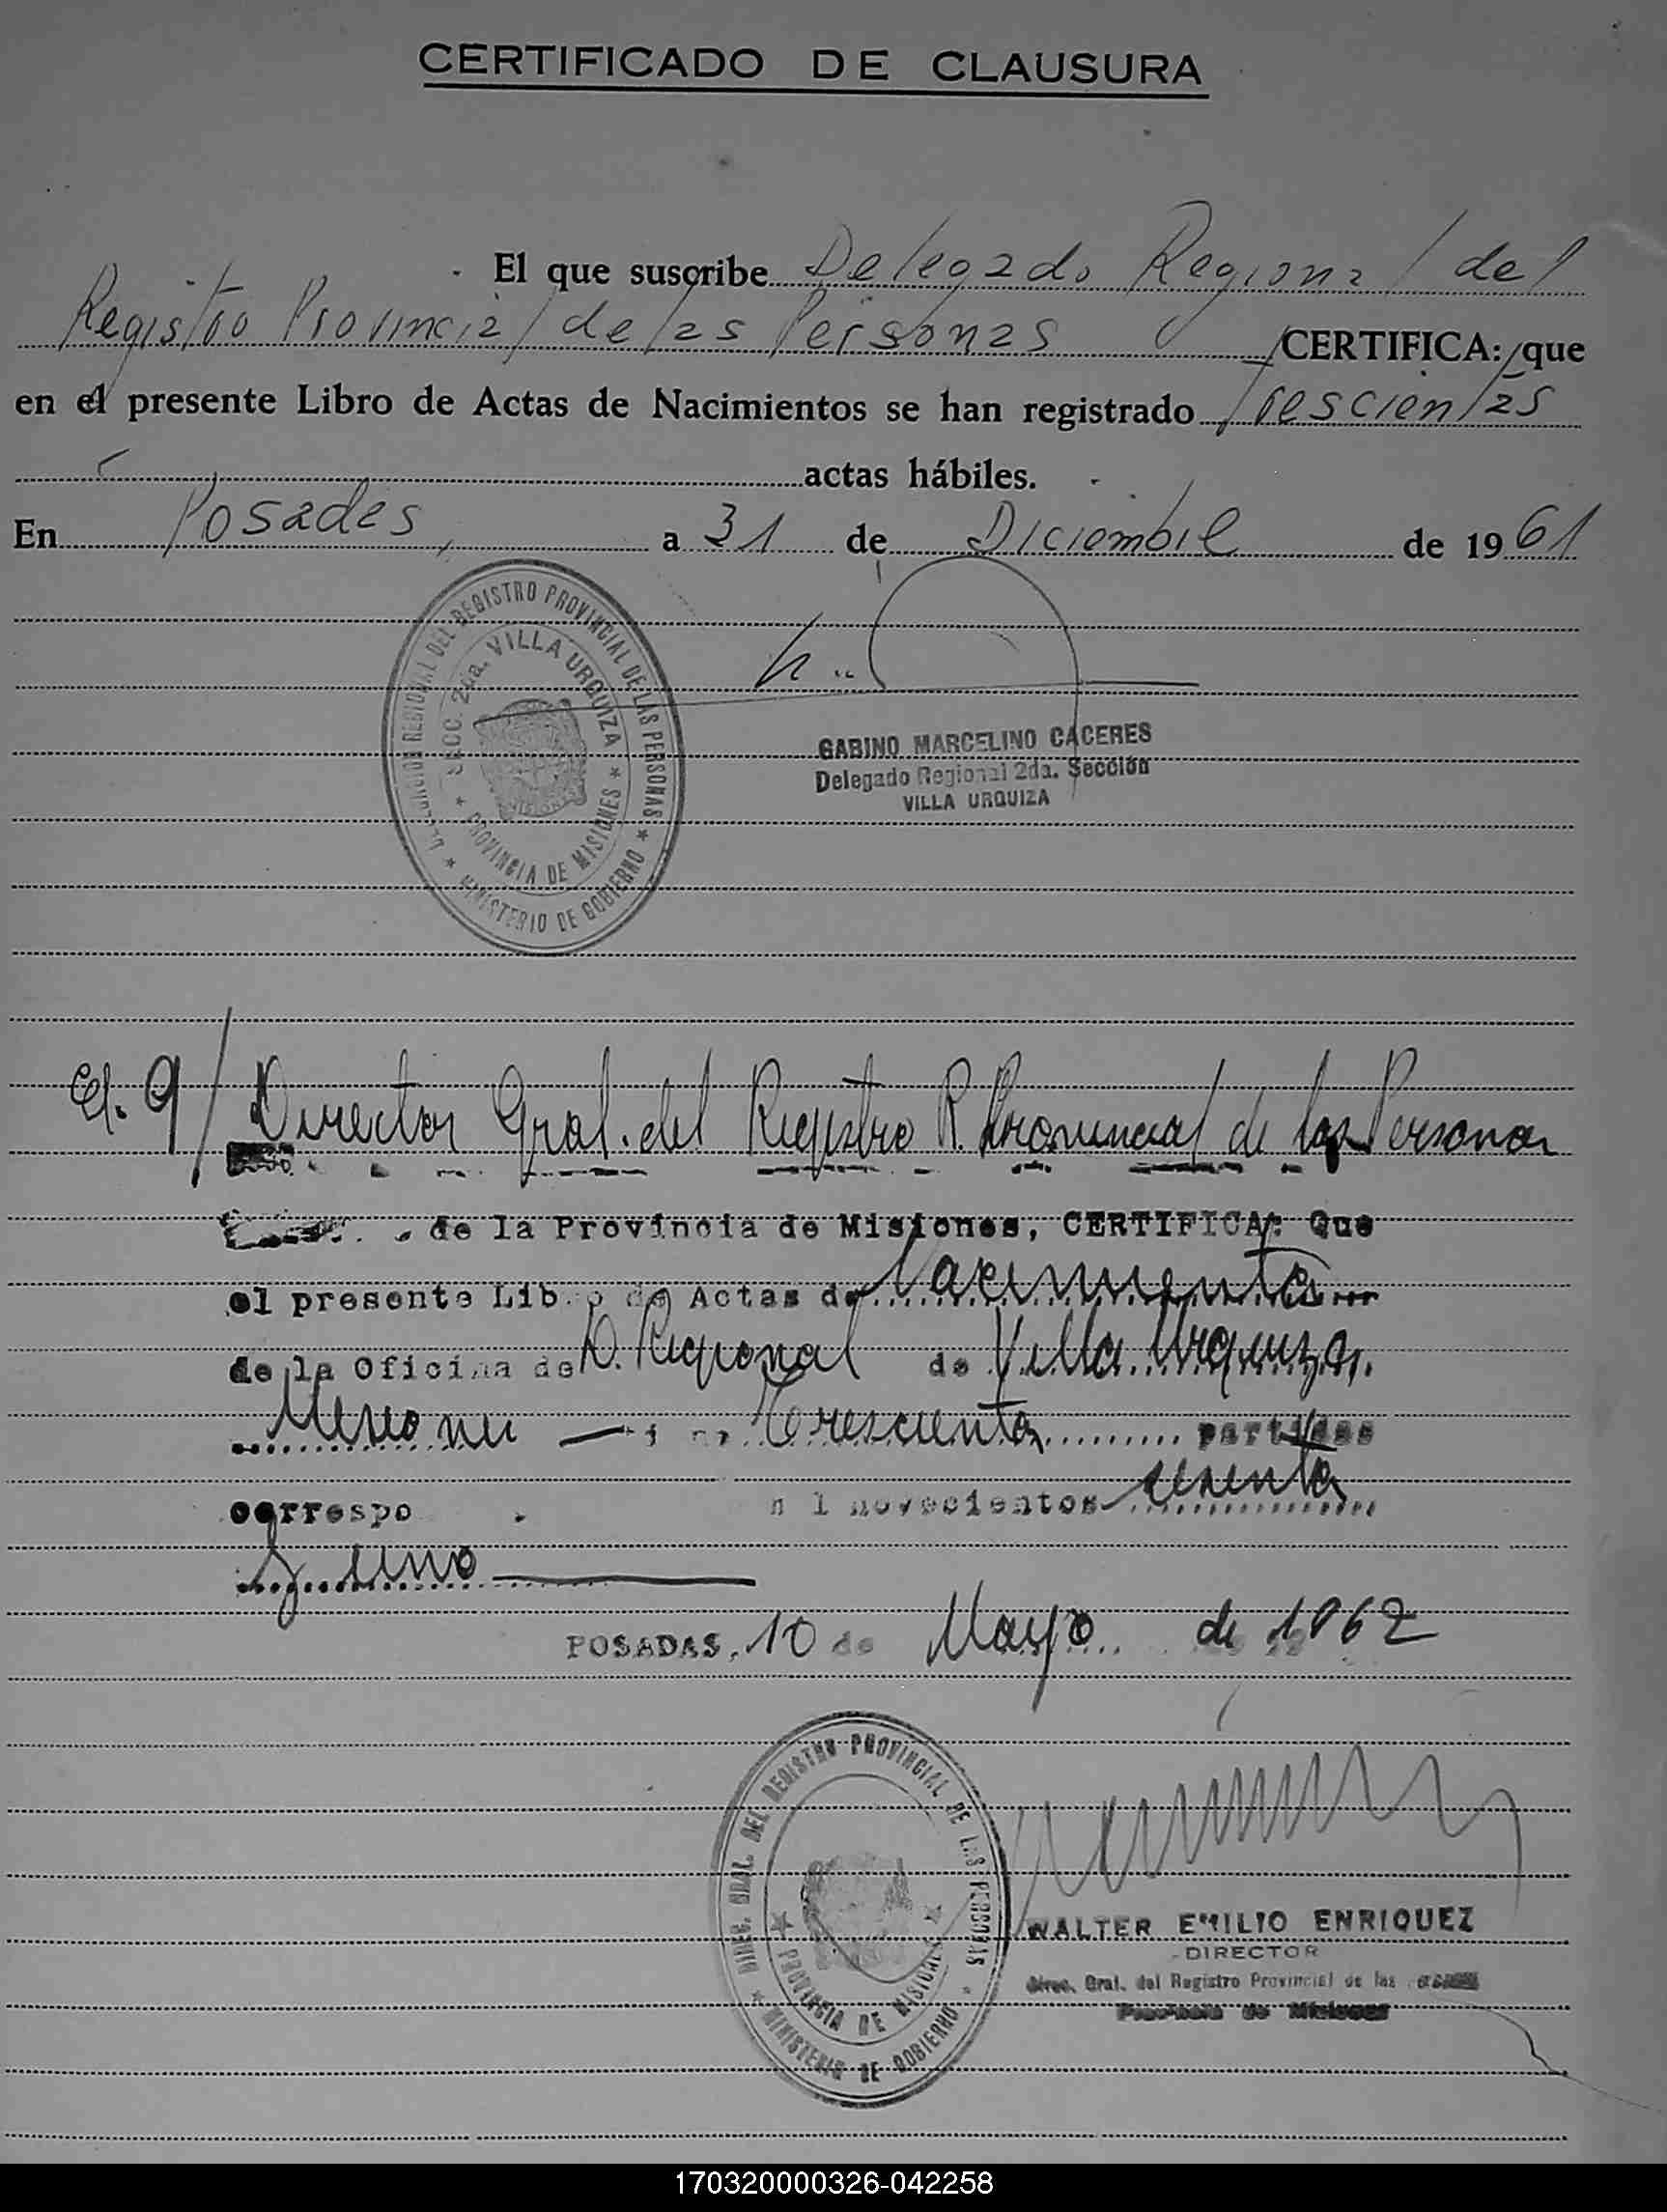 CERTIFICADO DE CLAUSURA
El que suscribe Delegado Regional del
Registro Provincial de las Personas CERTIFICA: que
en el presente Libro de Actas de Nacimientos se han registrado Trescientas
actas hábiles.
En Posadas, a 31 de Diciembre de 1961
DELEGACION REGIONAL DEL REGISTRO PROVINCIAL DE LAS PERSONAS * MINISTERIO DE GOBIERNO *
SECC. 2da. VILLA URQUIZA * PROVINCIA DE MISIONES *
GABINO MARCELINO CACERES
Delegado Regional 2da. Sección
VILLA URQUIZA
El. 9/ Director Gral. del Registro P. Provincial de las Personas
de la Provincia de Misiones, CERTIFICA: Que
el presente Libro de Actas de Nacimiento
de la Oficina de D. Regional de Villa Urquiza.
Misiones Trescienta partidas
correspo n l novecientos sesenta
y uno
POSADAS, 10 de Mayo de 1962
DIREC. GRAL. DEL REGISTRO PROVINCIAL DE LAS PERSONAS * MINISTERIO DE GOBIERNO *
PROVINCIA DE MISIONES
WALTER EMILIO ENRIQUEZ
DIRECTOR
Direc. Gral. del Registro Provincial de las
Provincia de Misiones
170320000326-042258